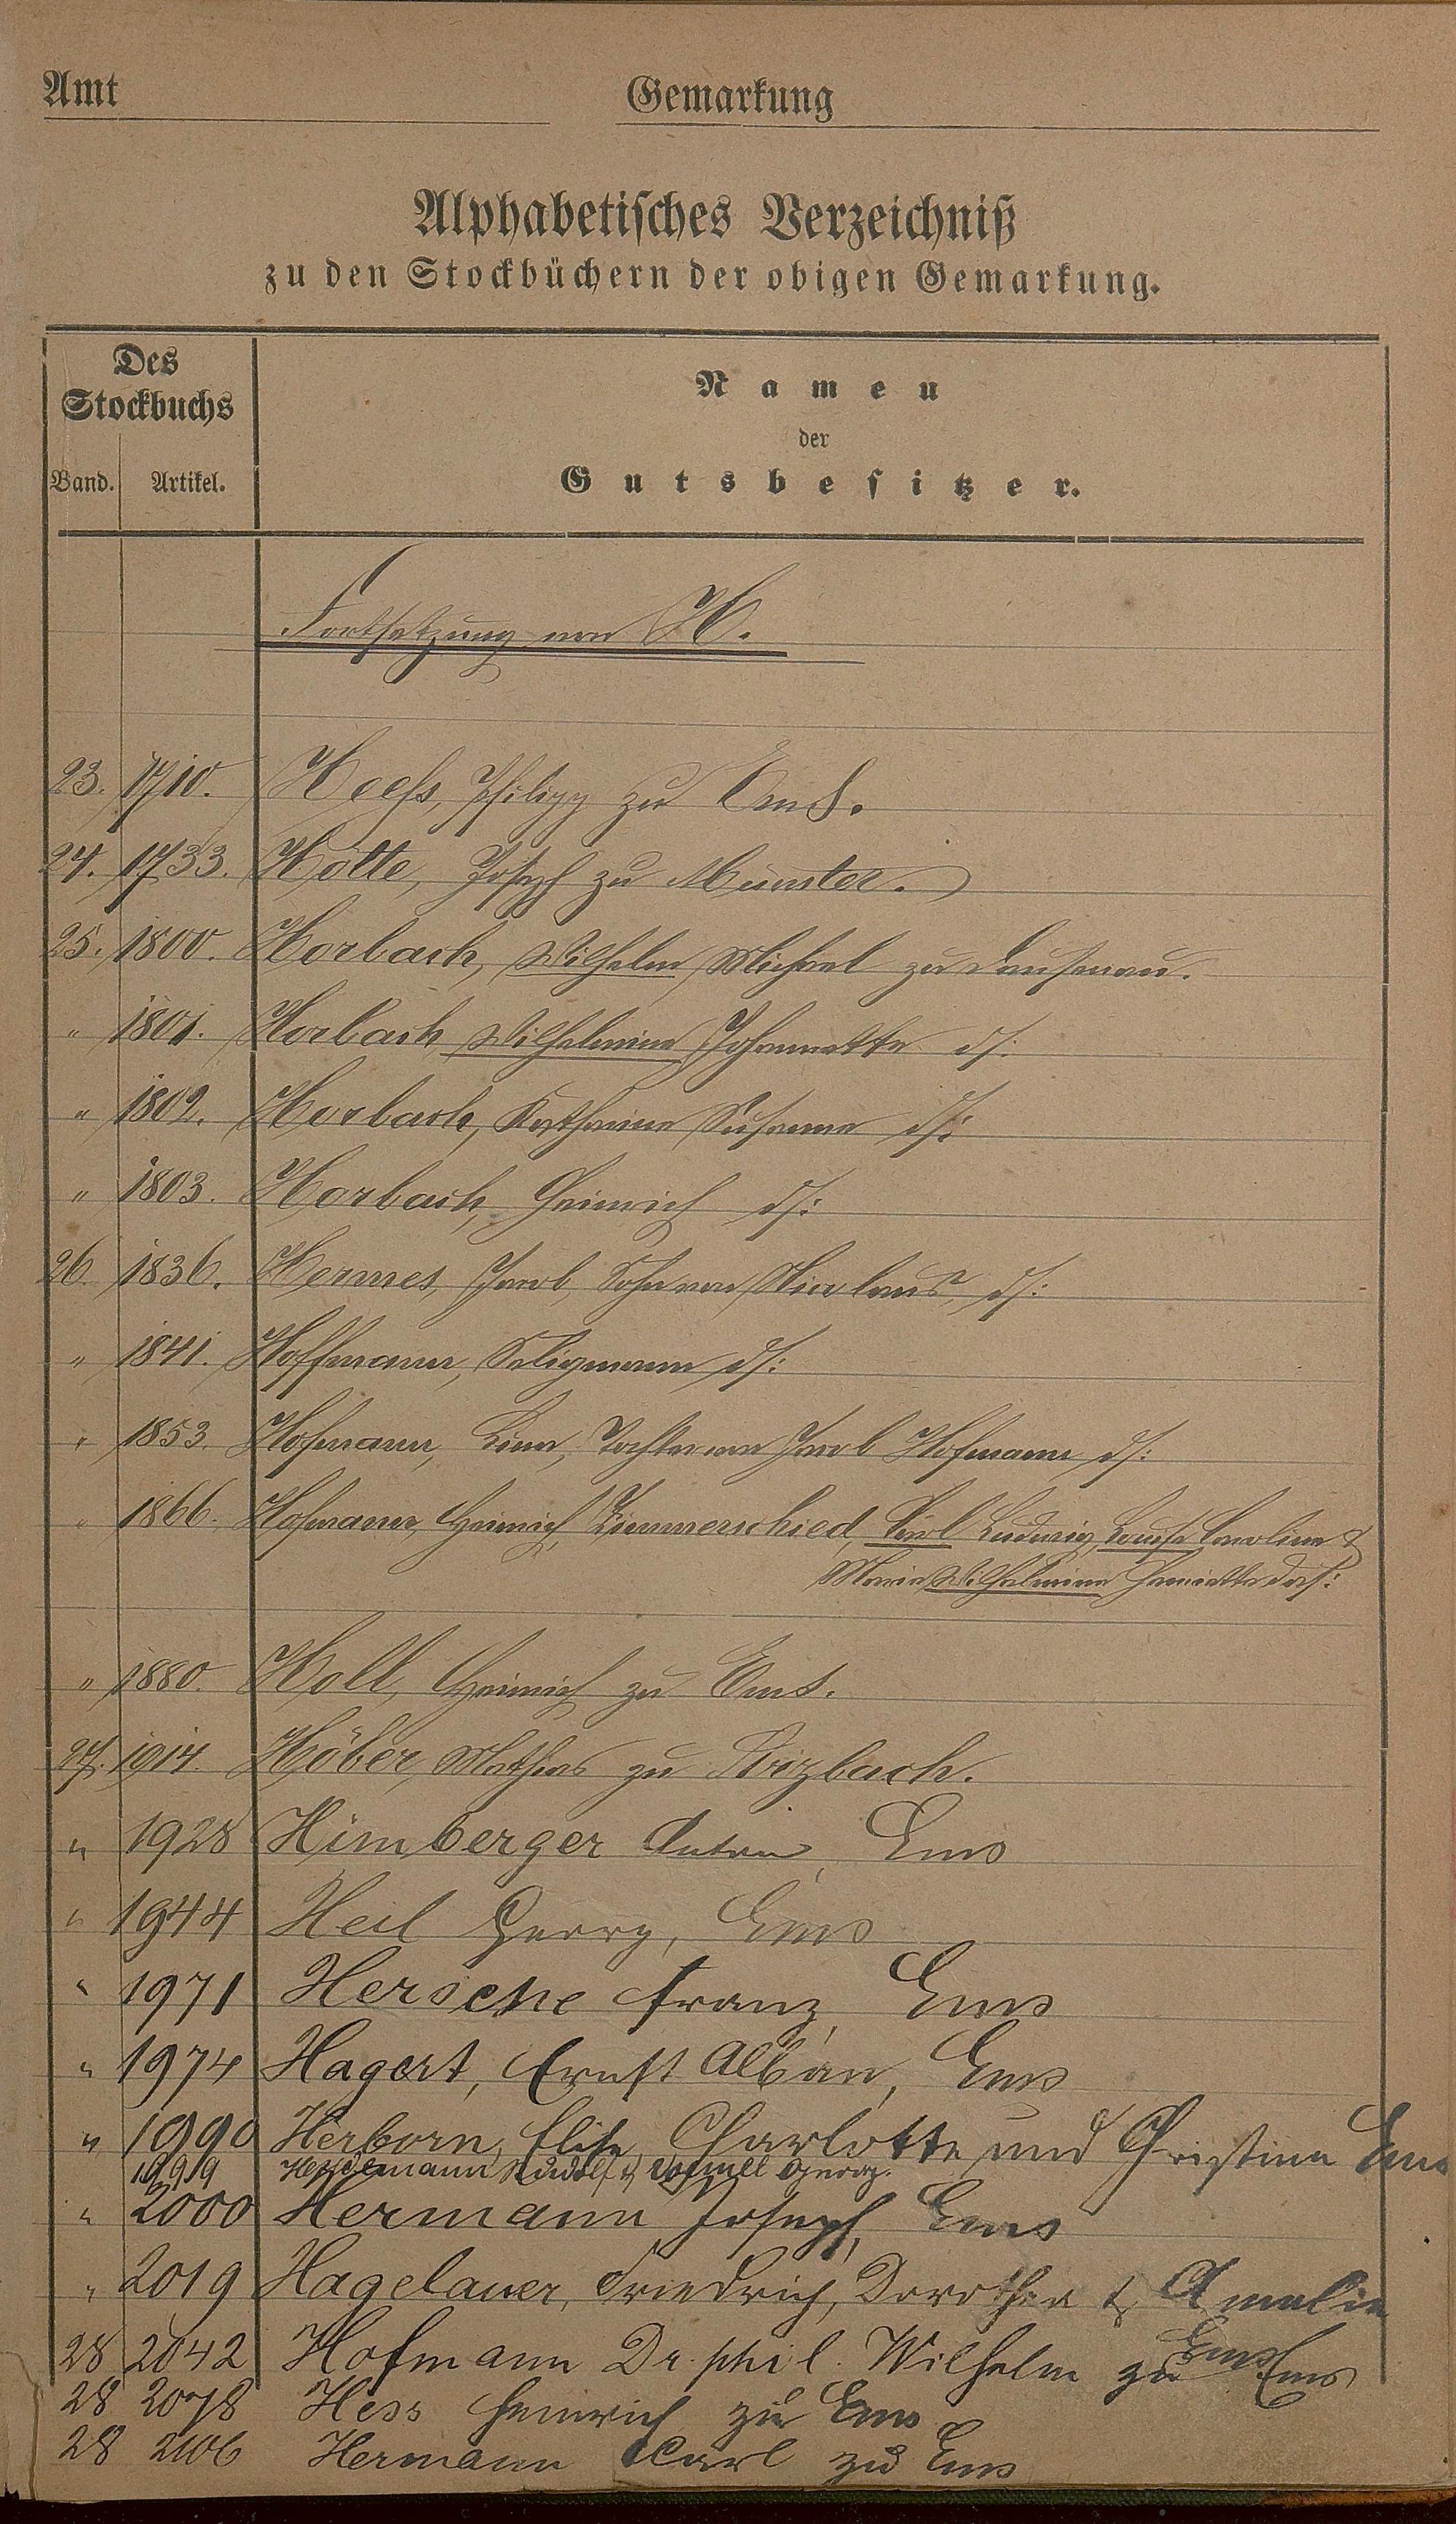 Amt
Gemarkung
Alphabetisches Verzeichniß
zu den Stockbüchern der obigen Gemarkung.
Des
Stockbuchs
Band. Artikel.
Namen
der
Gutsbesitzer.
Fortsetzung von H.
23. 1710. Heeß, Philipp zu Ems.
24. 1733. Hötte, Joseph zu Münster.
25. 1800. Horbach, Wilhelm Michael zu Dausenau.
" 1801. Horbach, Wilhelmine Johannette ds:
" 1802. Horbach, Katharine Susanna ds:
" 1803. Horbach, Heinrich ds:
26. 1836. Hermes, Jacob, Sohn von Nicolaus, ds:
" 1841. Hoffmann, Seligmann ds:
" 1853. Hofmann, Lina, Tochter von Jacob Hofmann ds:
" 1866. Hofmann, Heinrich, Zimmerschied, Carl Ludwig, Louise Caroline &
Maria Wilhelmine Henriette das:
" 1880. Holl, Heinrich zu Ems.
27. 1914. Höber, Mathias zu
" 1928 Himberger Anton, Ems
" 1944 Heil Georg, Ems
" 1971 Hersche Franz, Ems
" 1974 Hagert, Ernst Alban, Ems
" 1990 Herborn, Elise, Charlotte und Christina Ems
1999 Rudolf & Georg.
" 2000 Hermann Joseph, Ems
" 2019 Hagelauer, Friedrich, Dorothea & Amalie
Ems
28 2042 Hofmann Dr. phil. Wilhelm zu Ems
28 2078 Hess Heinrich zu Ems
28 2106 Hermann Carl zu Ems